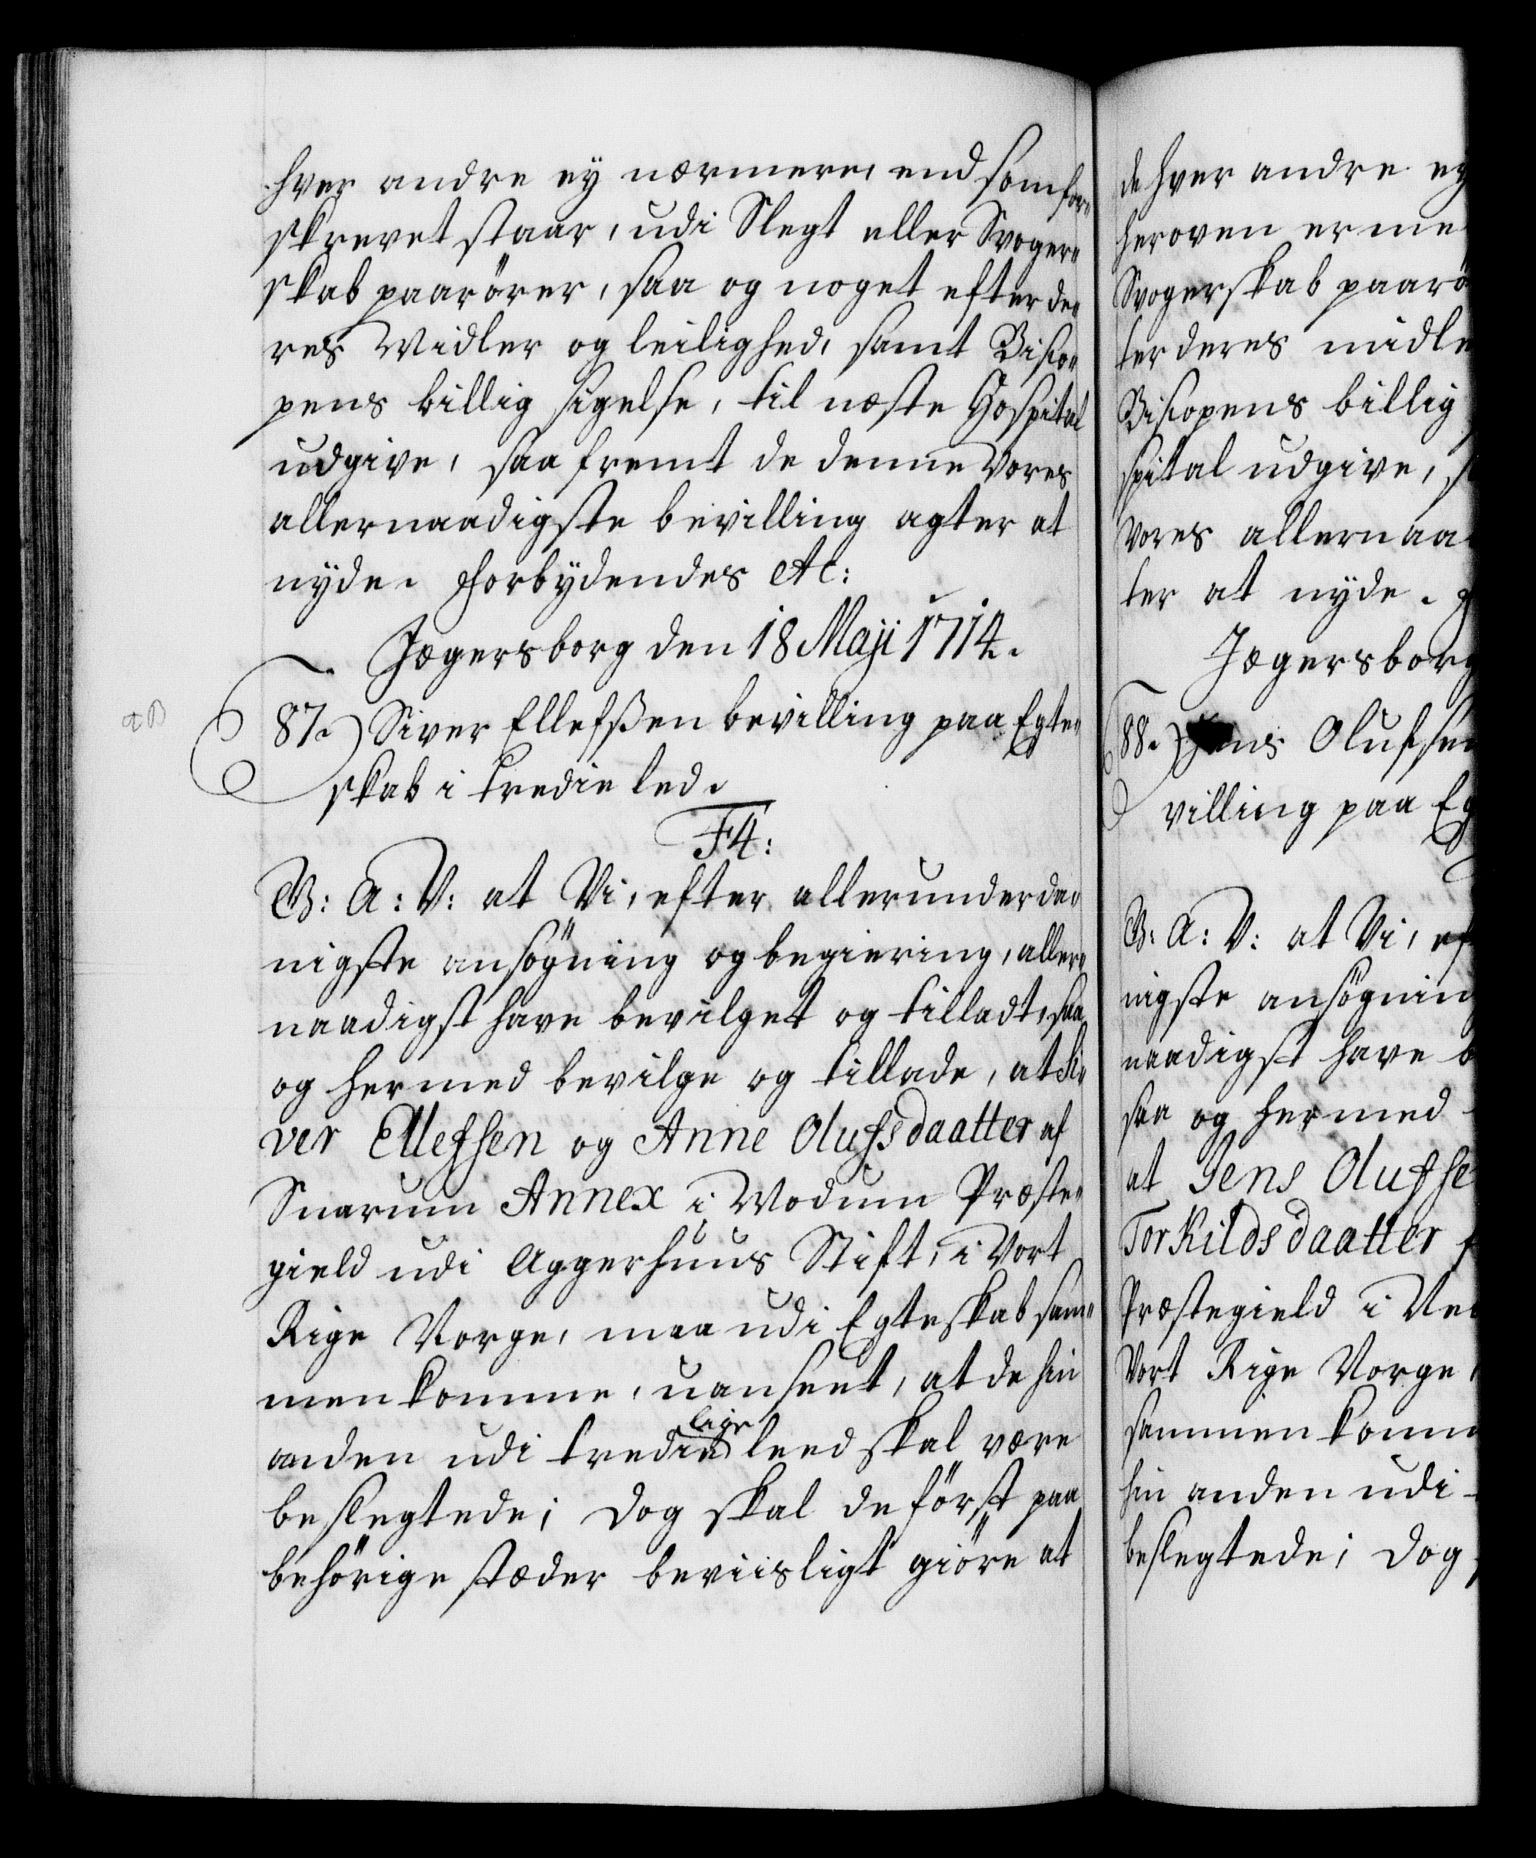 hver andre ey nærmere, end som for¬
skrevet staar, udi Slegt eller Svoger¬
skab paarörer, saa og noget efter de¬
res Midler og leilighed, samt Bisco¬
pens billig sigelse, til næste Hospital
udgive, saa fremt de denne Vores
allernaadigste bevilling agter at
nyde. Forbydendes etc:
Jægersborg den 18 Maji 1714.
87.) Siver Ellefsßen bevilling paa Egte¬
skab i tredie led.
F4:
G: A: V: at Vi, efter allerunderda¬
nigste ansögning og begiering, aller¬
naadigst have bevilget og tilladt, saa
og hermed bevilge og tillade, at Si¬
ver Ellefsen og Anne Olufsdaatter af
Snarum Annex i Modum Præste¬
gield udi Aggerhuus Stift, i Vort
Rige Norge, maa udi Egteskab sam¬
men komme, uanseet, at de hin
anden udi tredie lige leed skal være
beslegtede; Dog skal de först paa
behörige stæder beviisligt giöre at
de hver andre ey
heroven er me
Svogerskab paarö
ter deres midle
Biscopens billig
spital udgive, s
Vores allernaa
ter at nyde.
Jægersborg
88.) Jens Olufsen
villing paa Eg
G: A: V: at Vi, ef
nigste ansögning
naadigst have b
saa og hermed
at Jens Olufse
Torkildsdaatter
Præstegield i
Vort Rige Norge,
sammen komm
hin anden udi
beslegtede; Dog